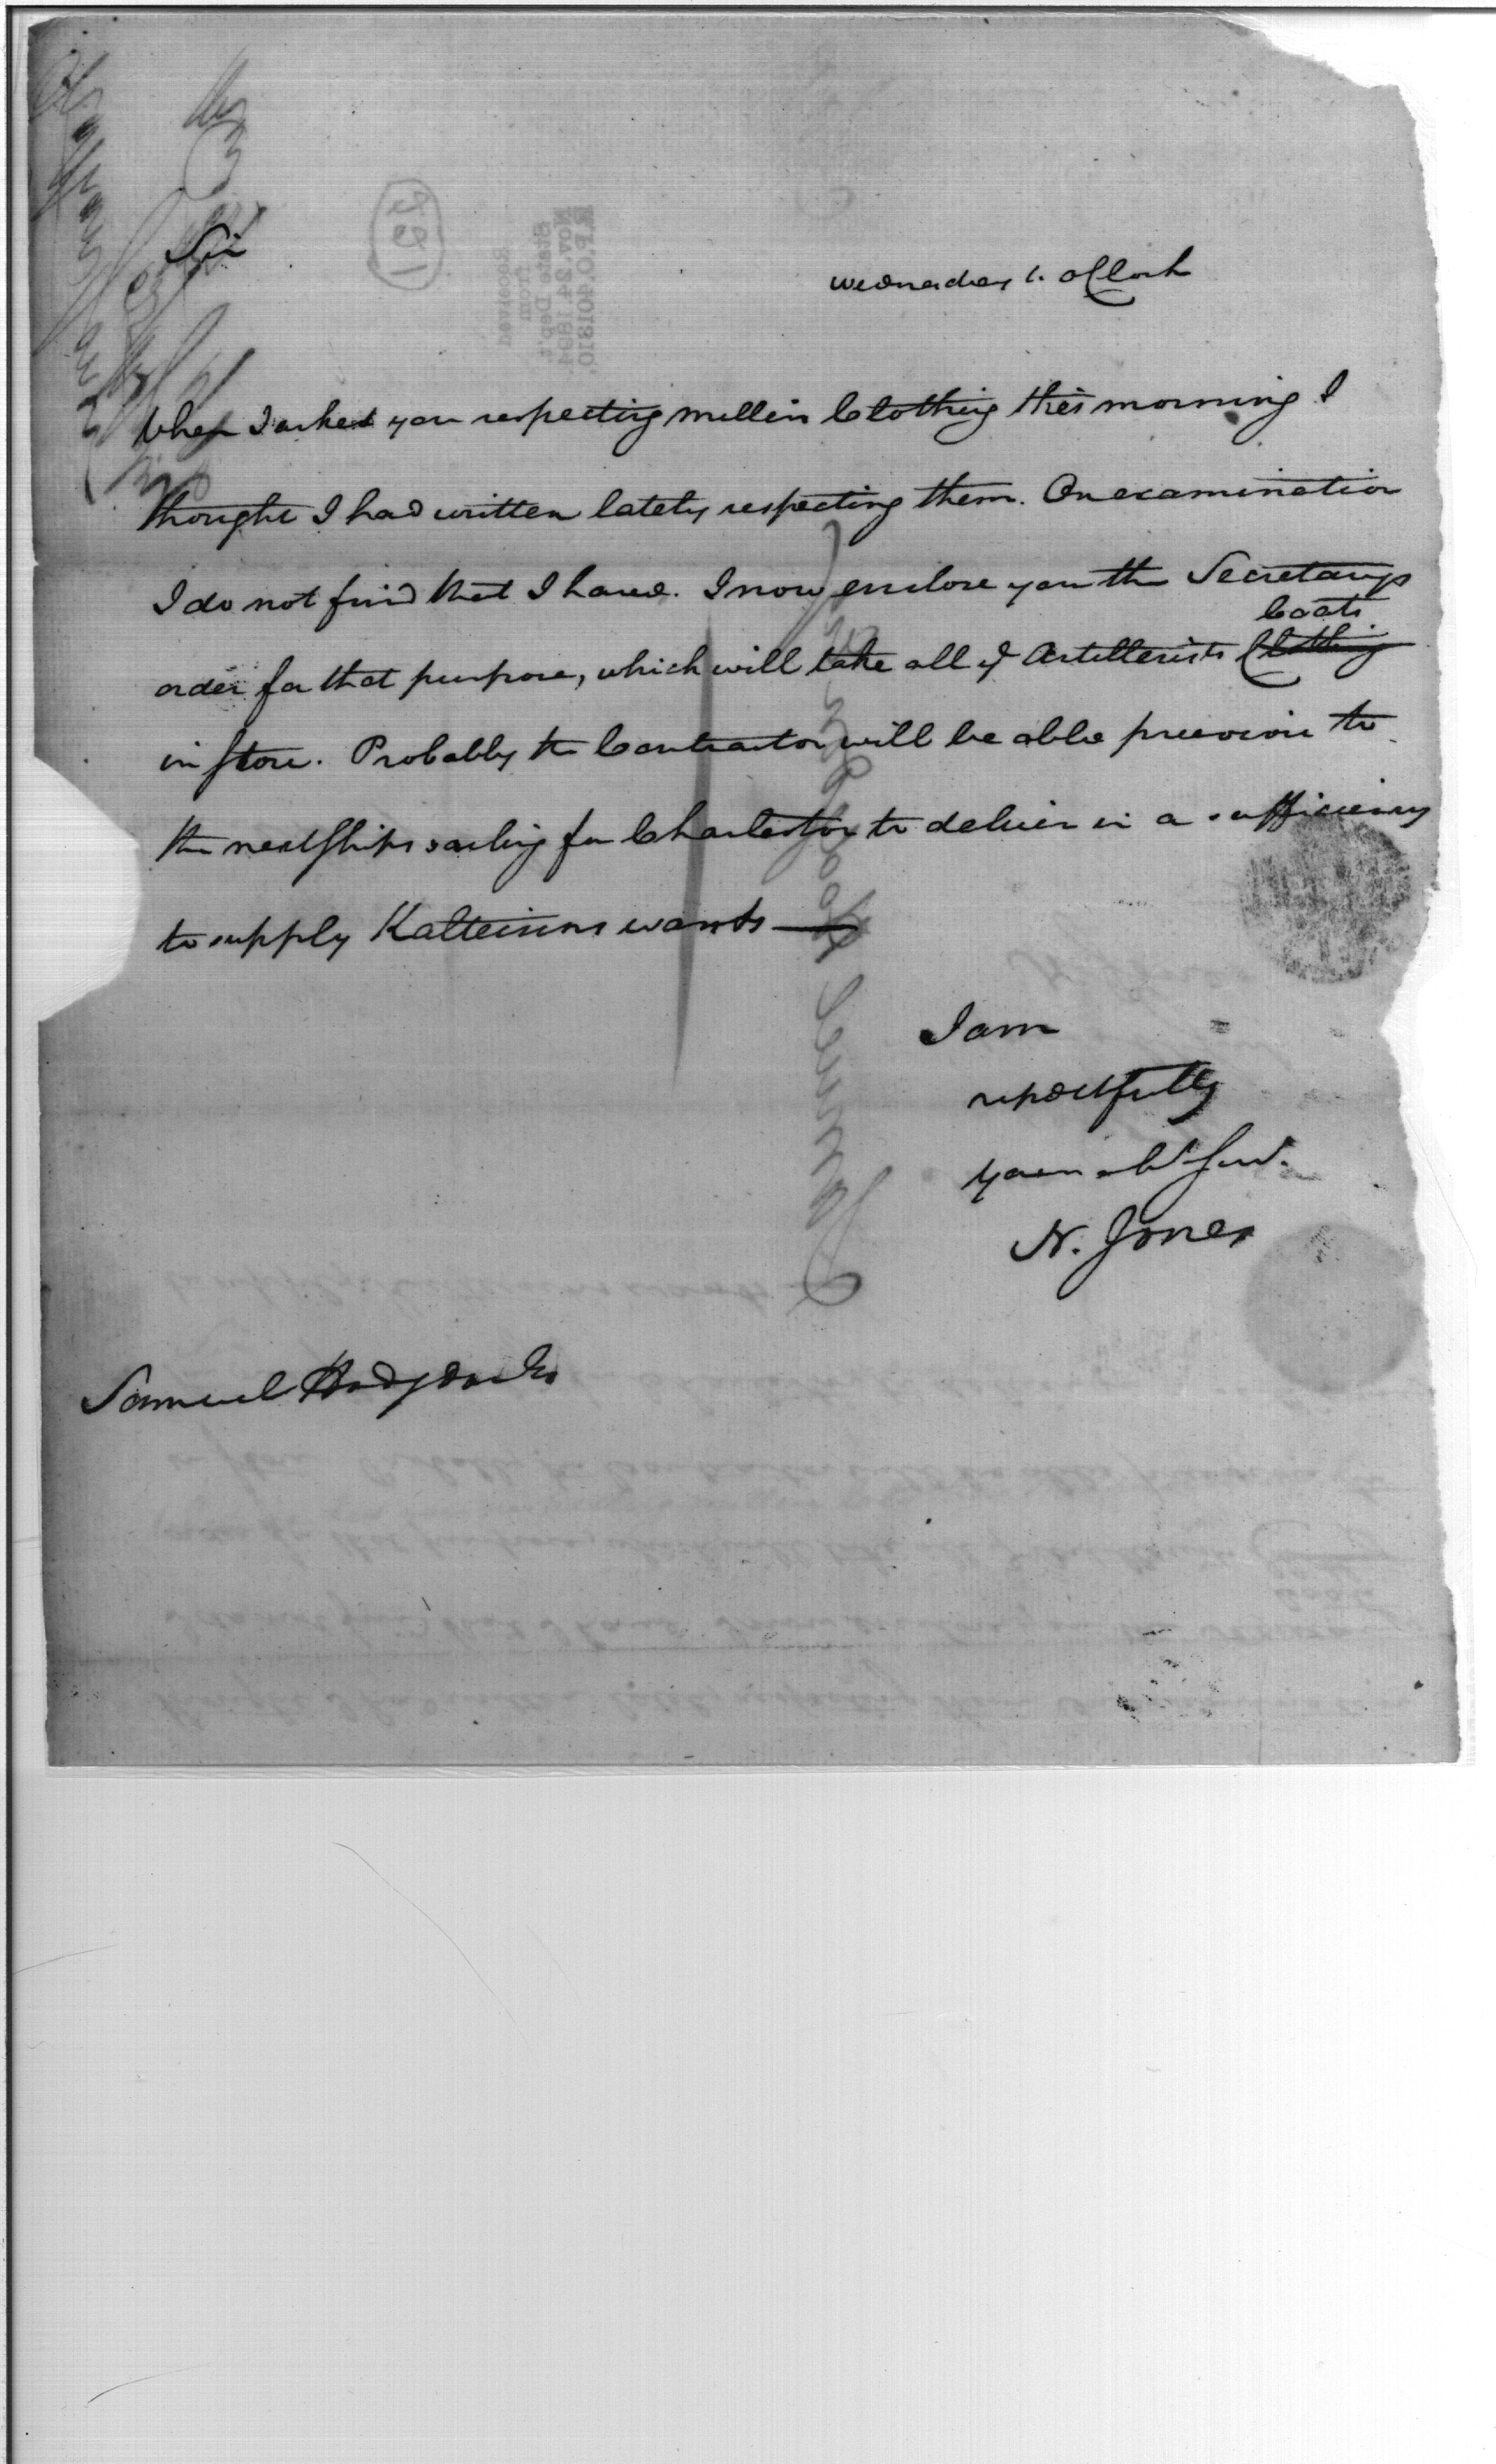 Sir
Wednesday 1. oClock
When I asked you respecting Mullins Clothing this morning I
thought I had written lately respecting them. On examination
I do not find that I have. I now enclose you the Secretarys
Coats
order for that purpose, which will take all ye Artillerists Clothing
in store. Probably the Contractor will be able previous to
the next Ships sailing for Charleston to deliver in a sufficiency
to supply Kalteisens wants —
I am
respectfully
your
N. Jones
Samuel Hodgdon
Received
from
State Dep't
Nov. 24, 1894
R.P.O. 401810.